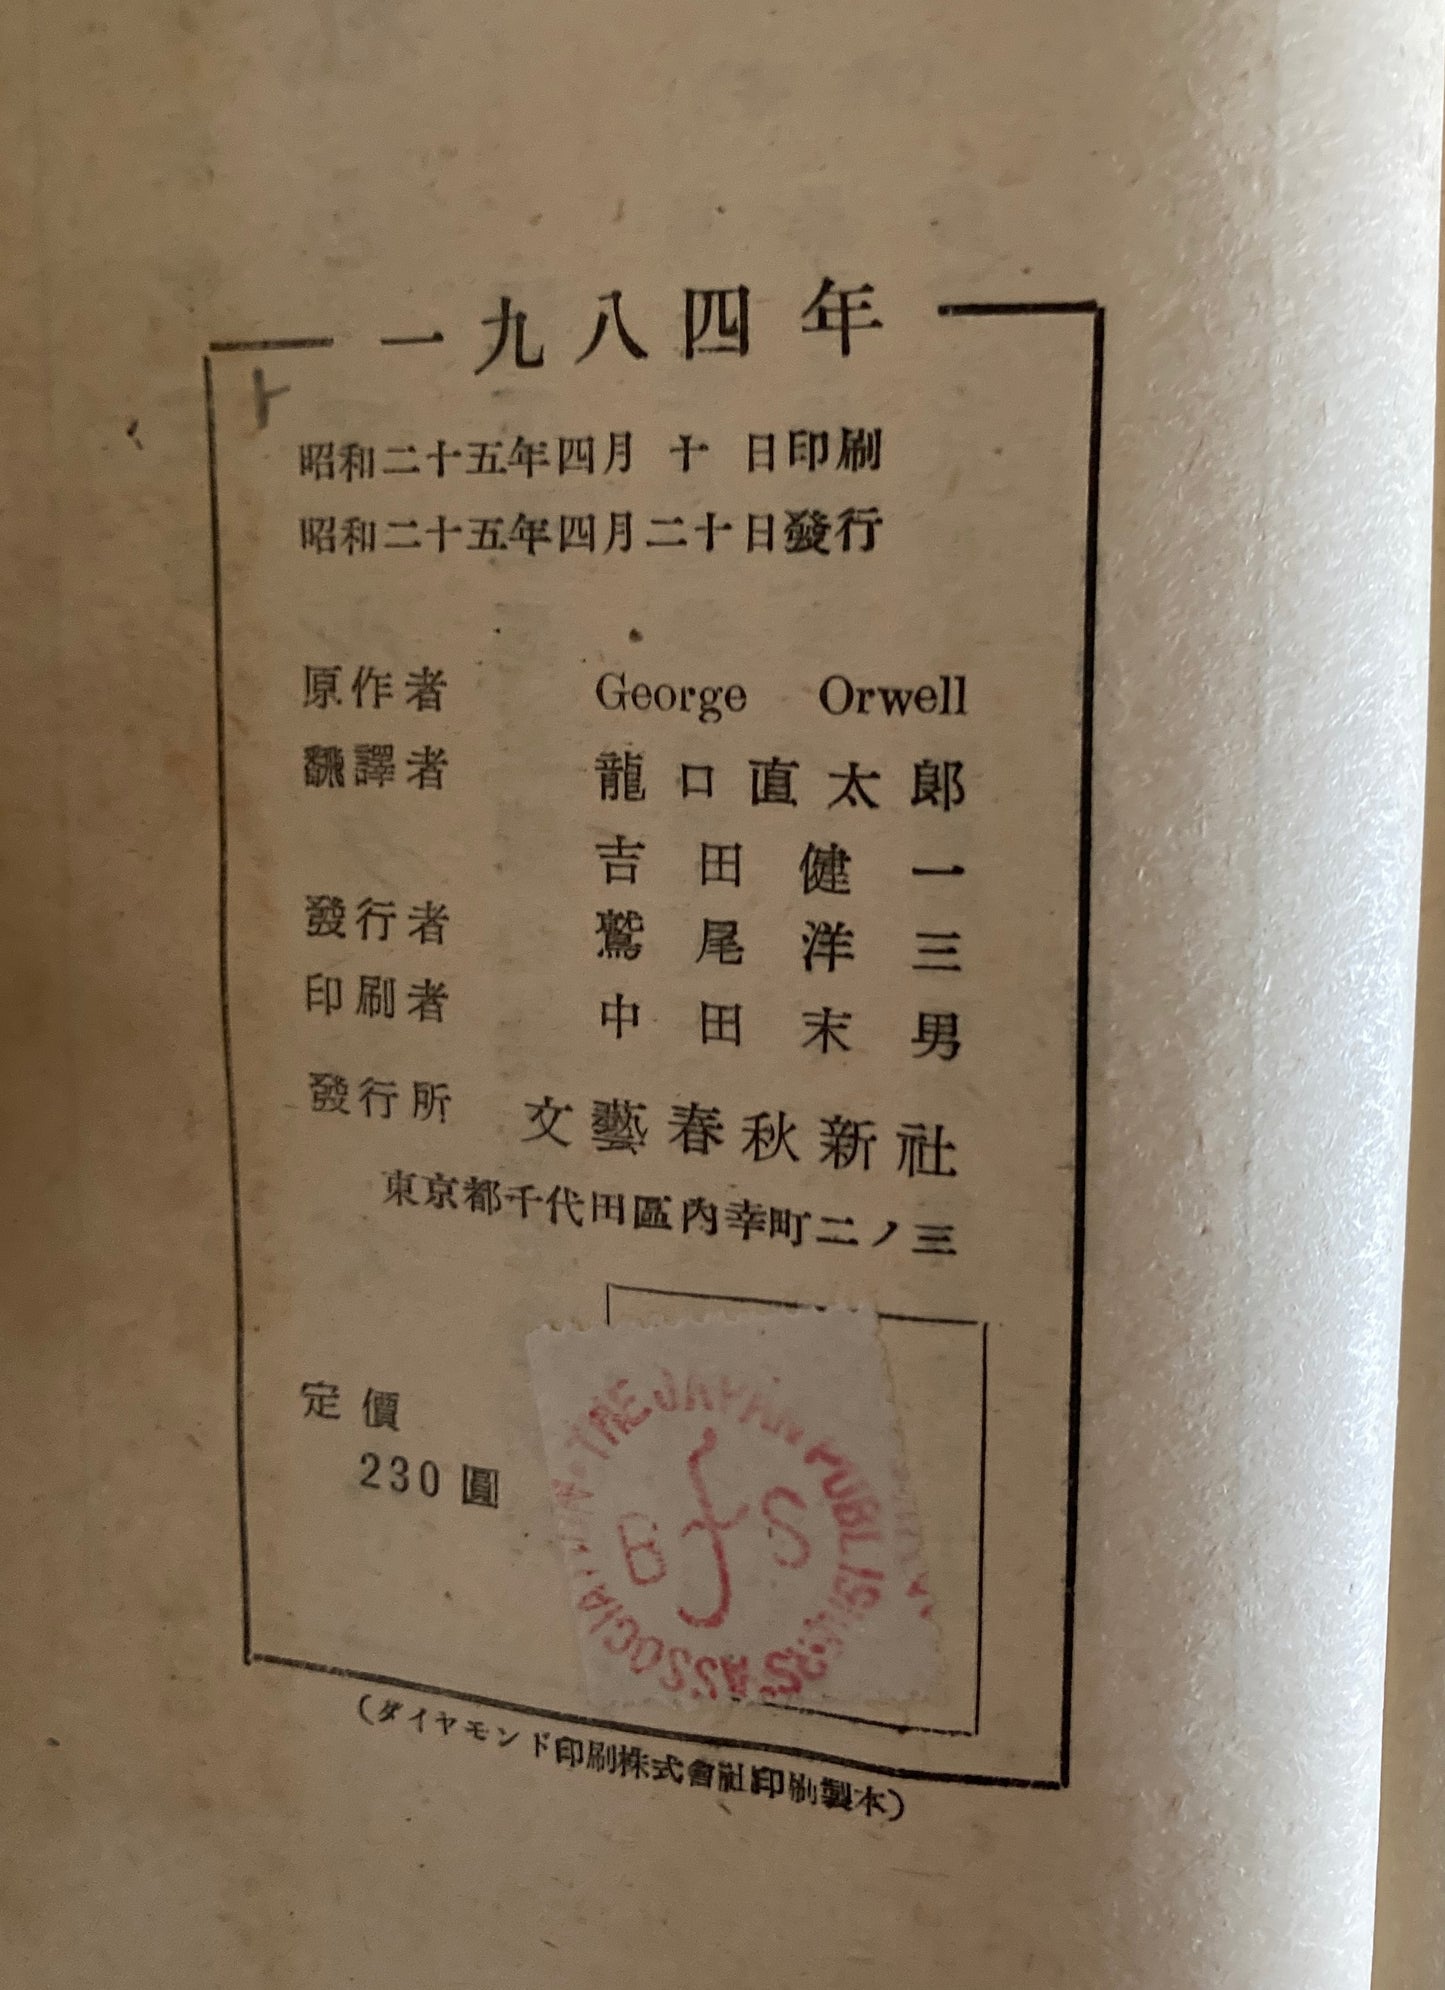 一九八四年
昭和二十五年四月十日印刷
昭和二十五年四月二十日發行
原作者 George Orwell
飜譯者 龍口直太郎
吉田健一
發行者 鷲尾洋三
印刷者 中田末男
發行所 文藝春秋新社
東京都千代田區內幸町二ノ三
定價
230圓
THE JAPAN PUBLISHERS ASSOCIATION
B S
(ダイヤモンド印刷株式會社印刷製本)